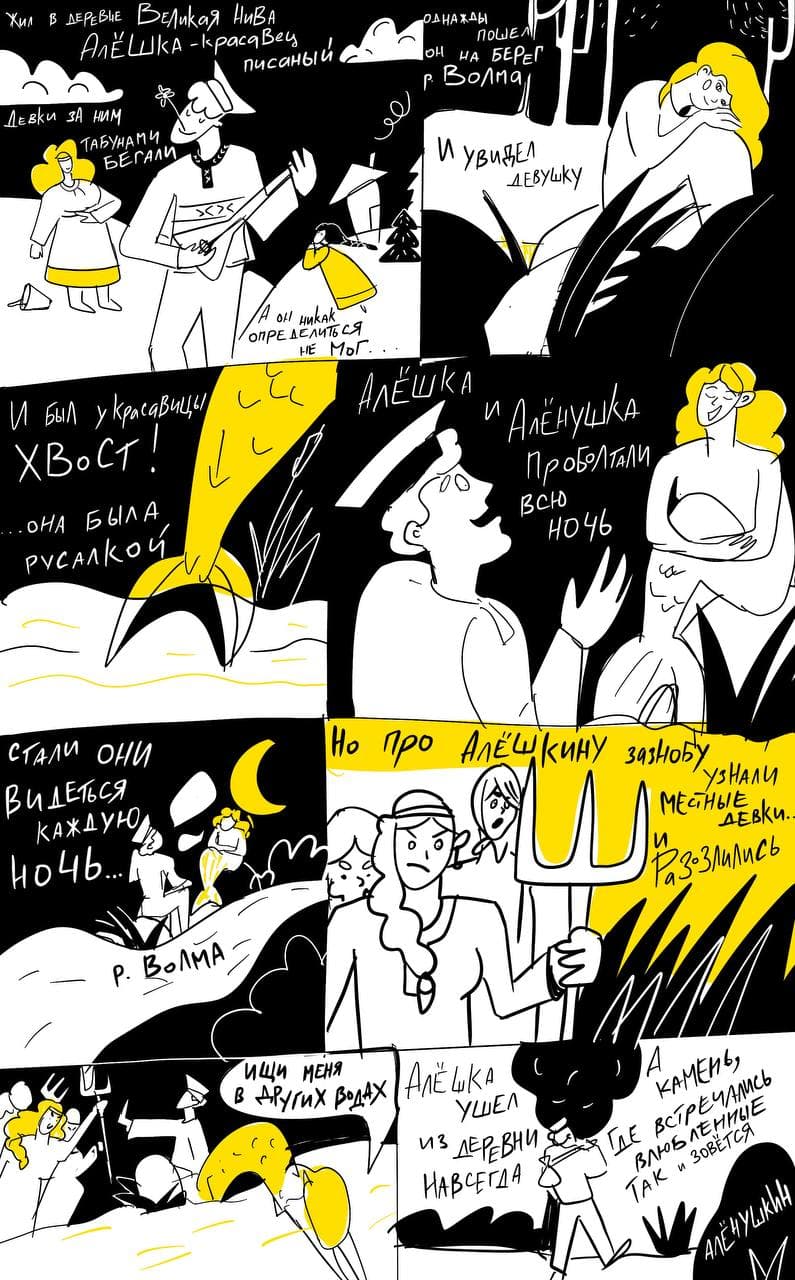 Жил в деревне Великая Нива
Алёшка-красавец
писаный
Девки за ним
табунами
бегали
А он никак
определиться
не мог...
Однажды
пошел
он на берег
р. Волма
И увидел
девушку
И был у красавицы
хвост!
...она была
русалкой
Алёшка
и Алёнушка
проболтали
всю
ночь
Стали они
видеться
каждую
ночь...
р. Волма
Но про Алёшкину зазнобу
узнали
местные
девки...
и
разозлились
Ищи меня
в других водах
Алёшка
ушел
из деревни
навсегда
А
камень,
где встречались
влюбленные
так и зовётся
Алёнушкин